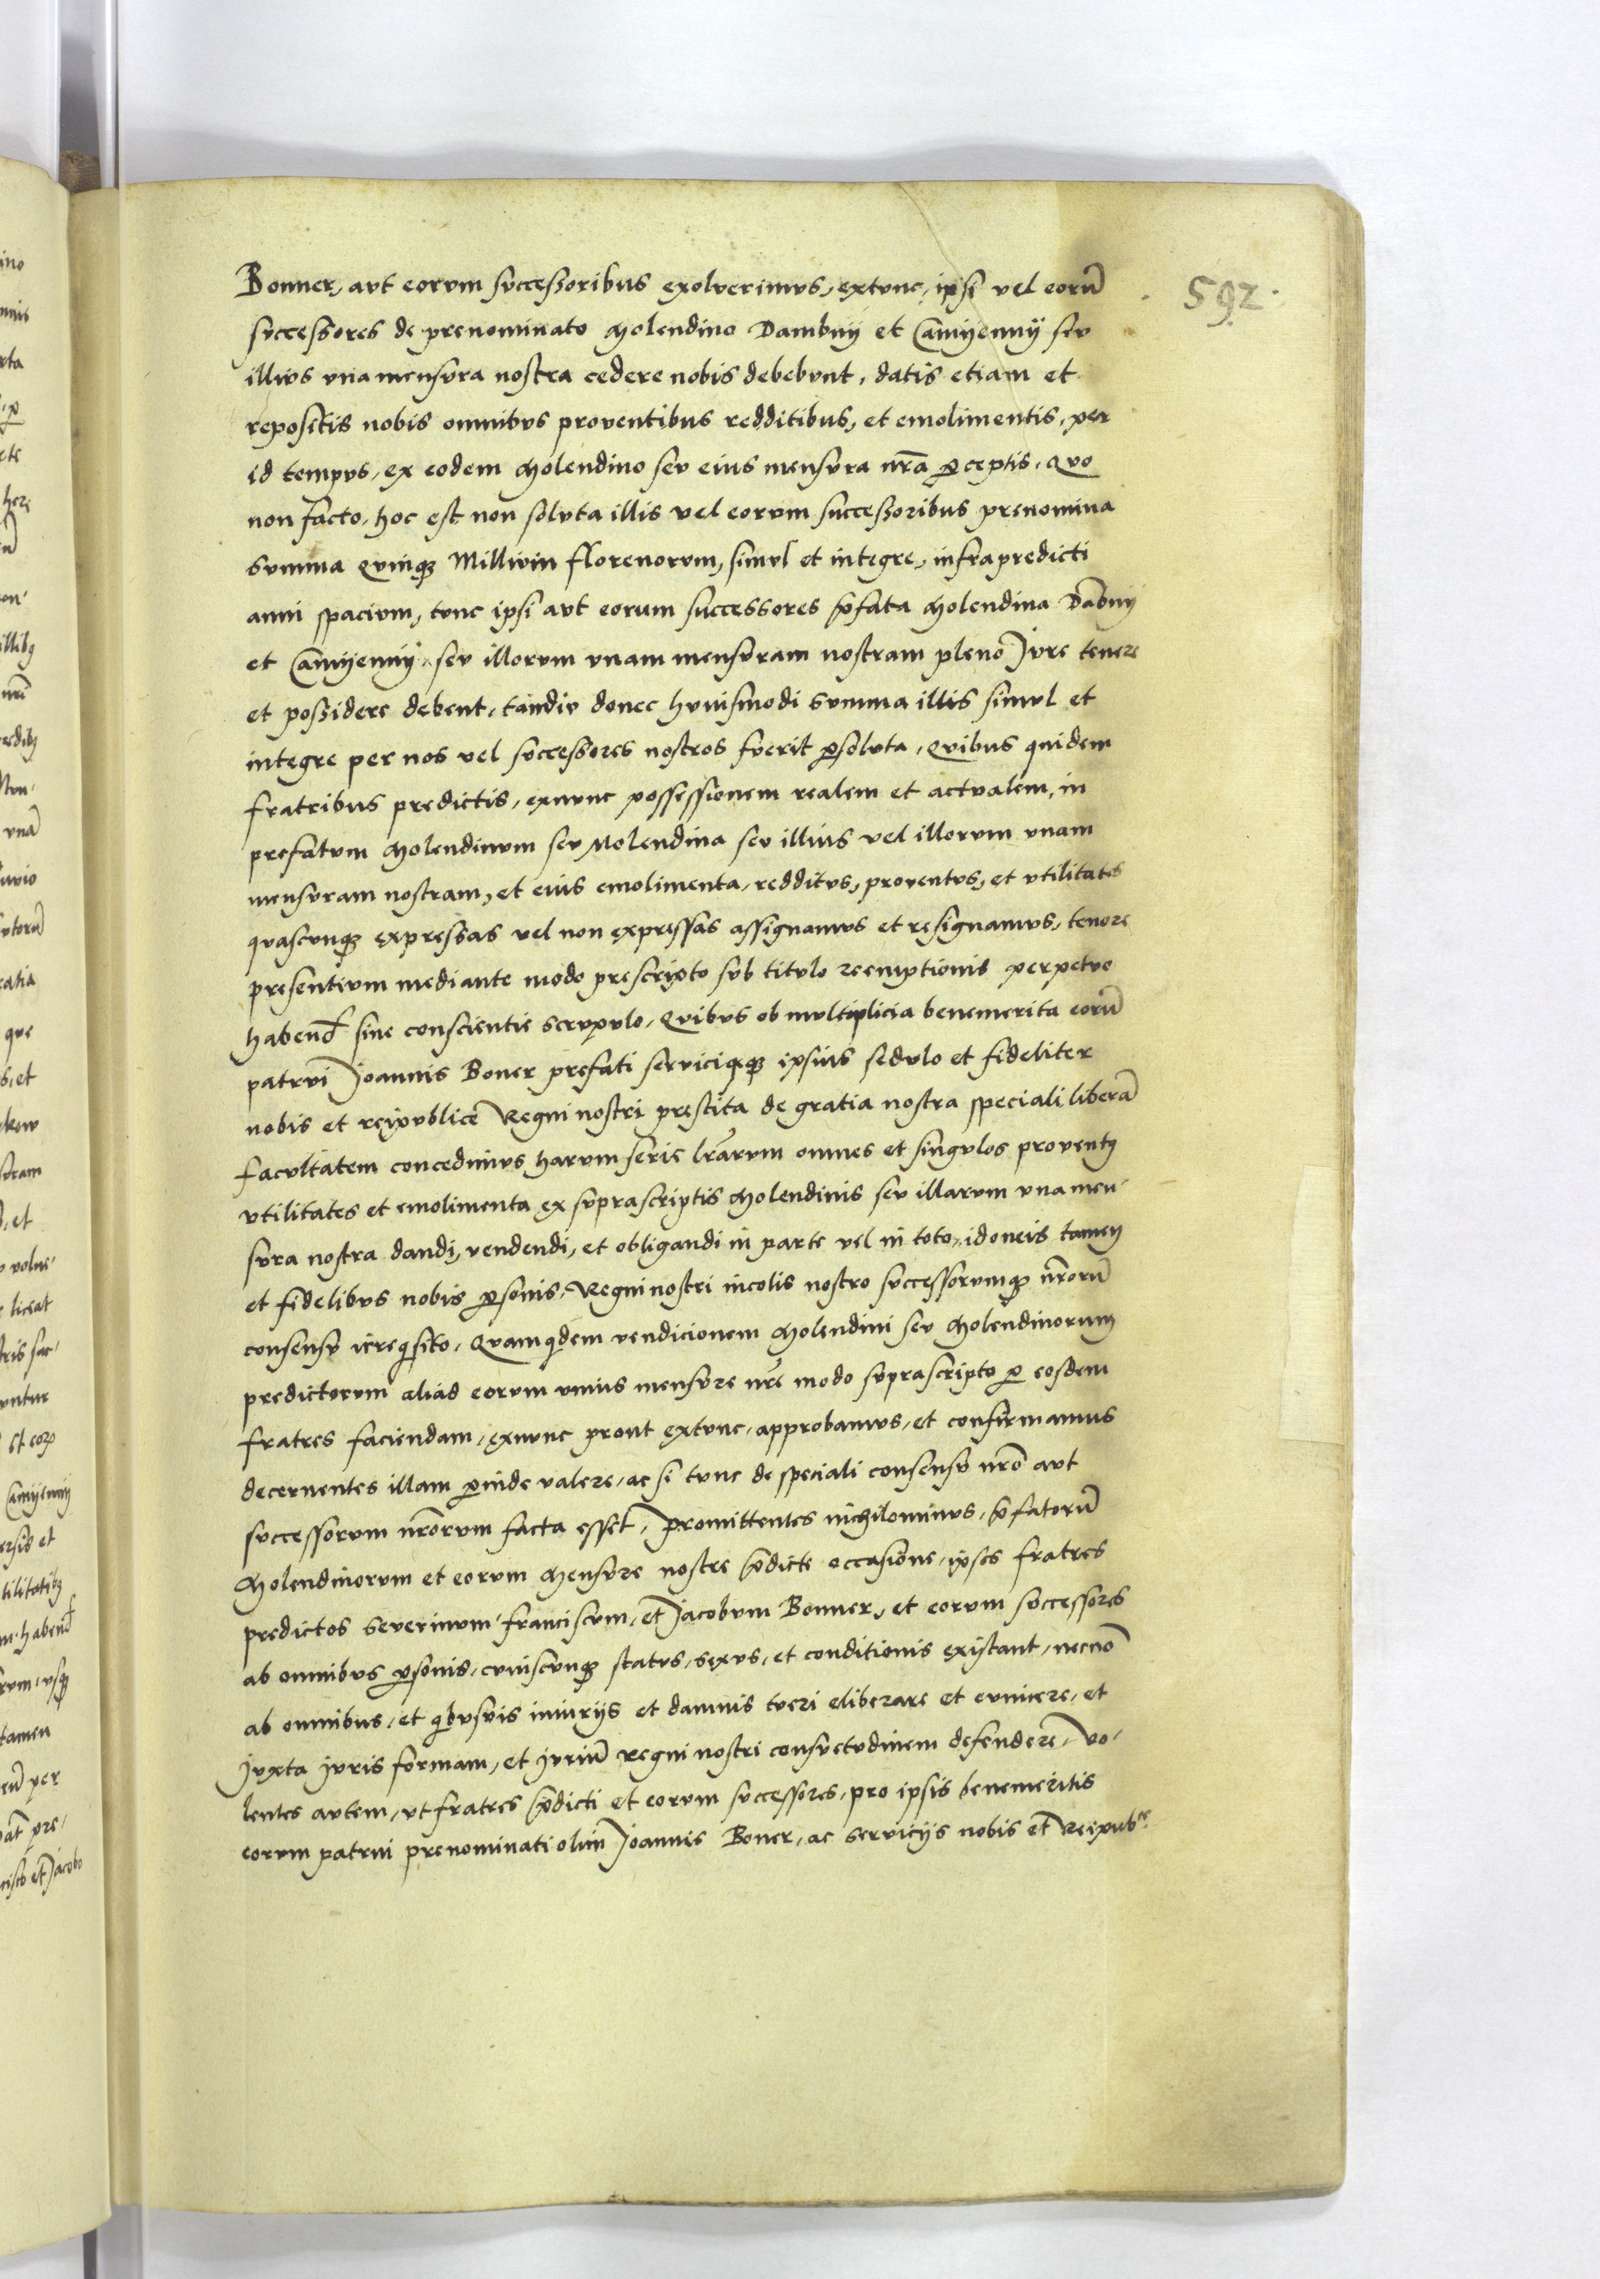 592.
Bonner, aut eorum successoribus exolverimus, extunc, ipsi vel eorũ
successores de prenominato Molendino Dambny et Camyenny seu
illius una mensura nostra cedere nobis debebunt, datis etiam et
repositis nobis omnibus proventibus redditibus, et emolimentis, per
id tempus, ex eodem Molendino seu eius mensura nrã ꝑceptis, Quo
non facto, hoc est non soluta illis vel eorum successoribus prenomina
summa quinqꝫ Millium florenorum, simul et integre, infra predicti
anni spacium, tunc ipsi aut eorum successores p̃fata Molendina Dãbny
et Camyenny, seu illorum unam mensuram nostram pleno Jure tenere
et possidere debent, tandiu donec huiusmodi summa illis simul et
integre per nos vel successores nostros fuerit ꝑsoluta, Quibus quidem
fratribus predictis, exnunc possessionem realem et actualem, in
prefatum Molendinum seu Molendina seu illius vel illorum unam
mensuram nostram, et eius emolimenta, redditus, proventus, et utilitates
quascunqꝫ expressas vel non expressas assignamus et resignamus, tenore
presentium mediante modo prescripto sub titulo reemptionis perpetuo
habend̃ sine conscientie scrupulo, Quibus ob multiplicia benemerita eorũ
patrui Joannis Boner prefati serviciqꝫ ipsius sedulo et fideliter
nobis et reipublice Regni nostri prestita de gratia nostra speciali liberã
facultatem concedimus harum serie lr̃arum omnes et singulos provent9
utilitates et emolimenta ex suprascriptis Molendinis seu illarum una men-
sura nostra dandi, vendendi, et obligandi in parte vel in toto, idoneis tamen
et fidelibus nobis ꝑsonis, Regni nostri incolis nostro successorumqꝫ nr̃orũ
consensu irreq̃sito, Quamq̃dem vendicionem Molendini seu Molendinorum
predictorum aliãd eorum unius mensure nr̃e modo suprascripto ꝑ eosdem
fratres faciendam, exnunc prout extunc, approbamus, et confirmamus
decernentes illam ꝑinde valere, ac si tunc de speciali consensu nr̃o aut
successorum nr̃orum facta esset, Promittentes nichilominus, p̃fatorũ
Molendinorum et eorum Mensure nostre p̃dicte occasione, ipsos fratres
predictos Severinum, franciscum, et Jacobum Bonner, et eorum successores
ab omnibus ꝑsonis, cuiuscunqꝫ status, sexus, et conditionis existant, necnõ
ab omnibus, et q̃busvis iniuriis et damnis tueri eliberare et evincere, et
Juxta Juris formam, et Juriũ regni nostri consuetudinem defendere, Vo-
lentes autem, ut fratres p̃dicti et eorum successores, pro ipsis benemeritis
eorum patrui prenominati olim Joannis Boner, ac serviciis nobis et Reipub^ce